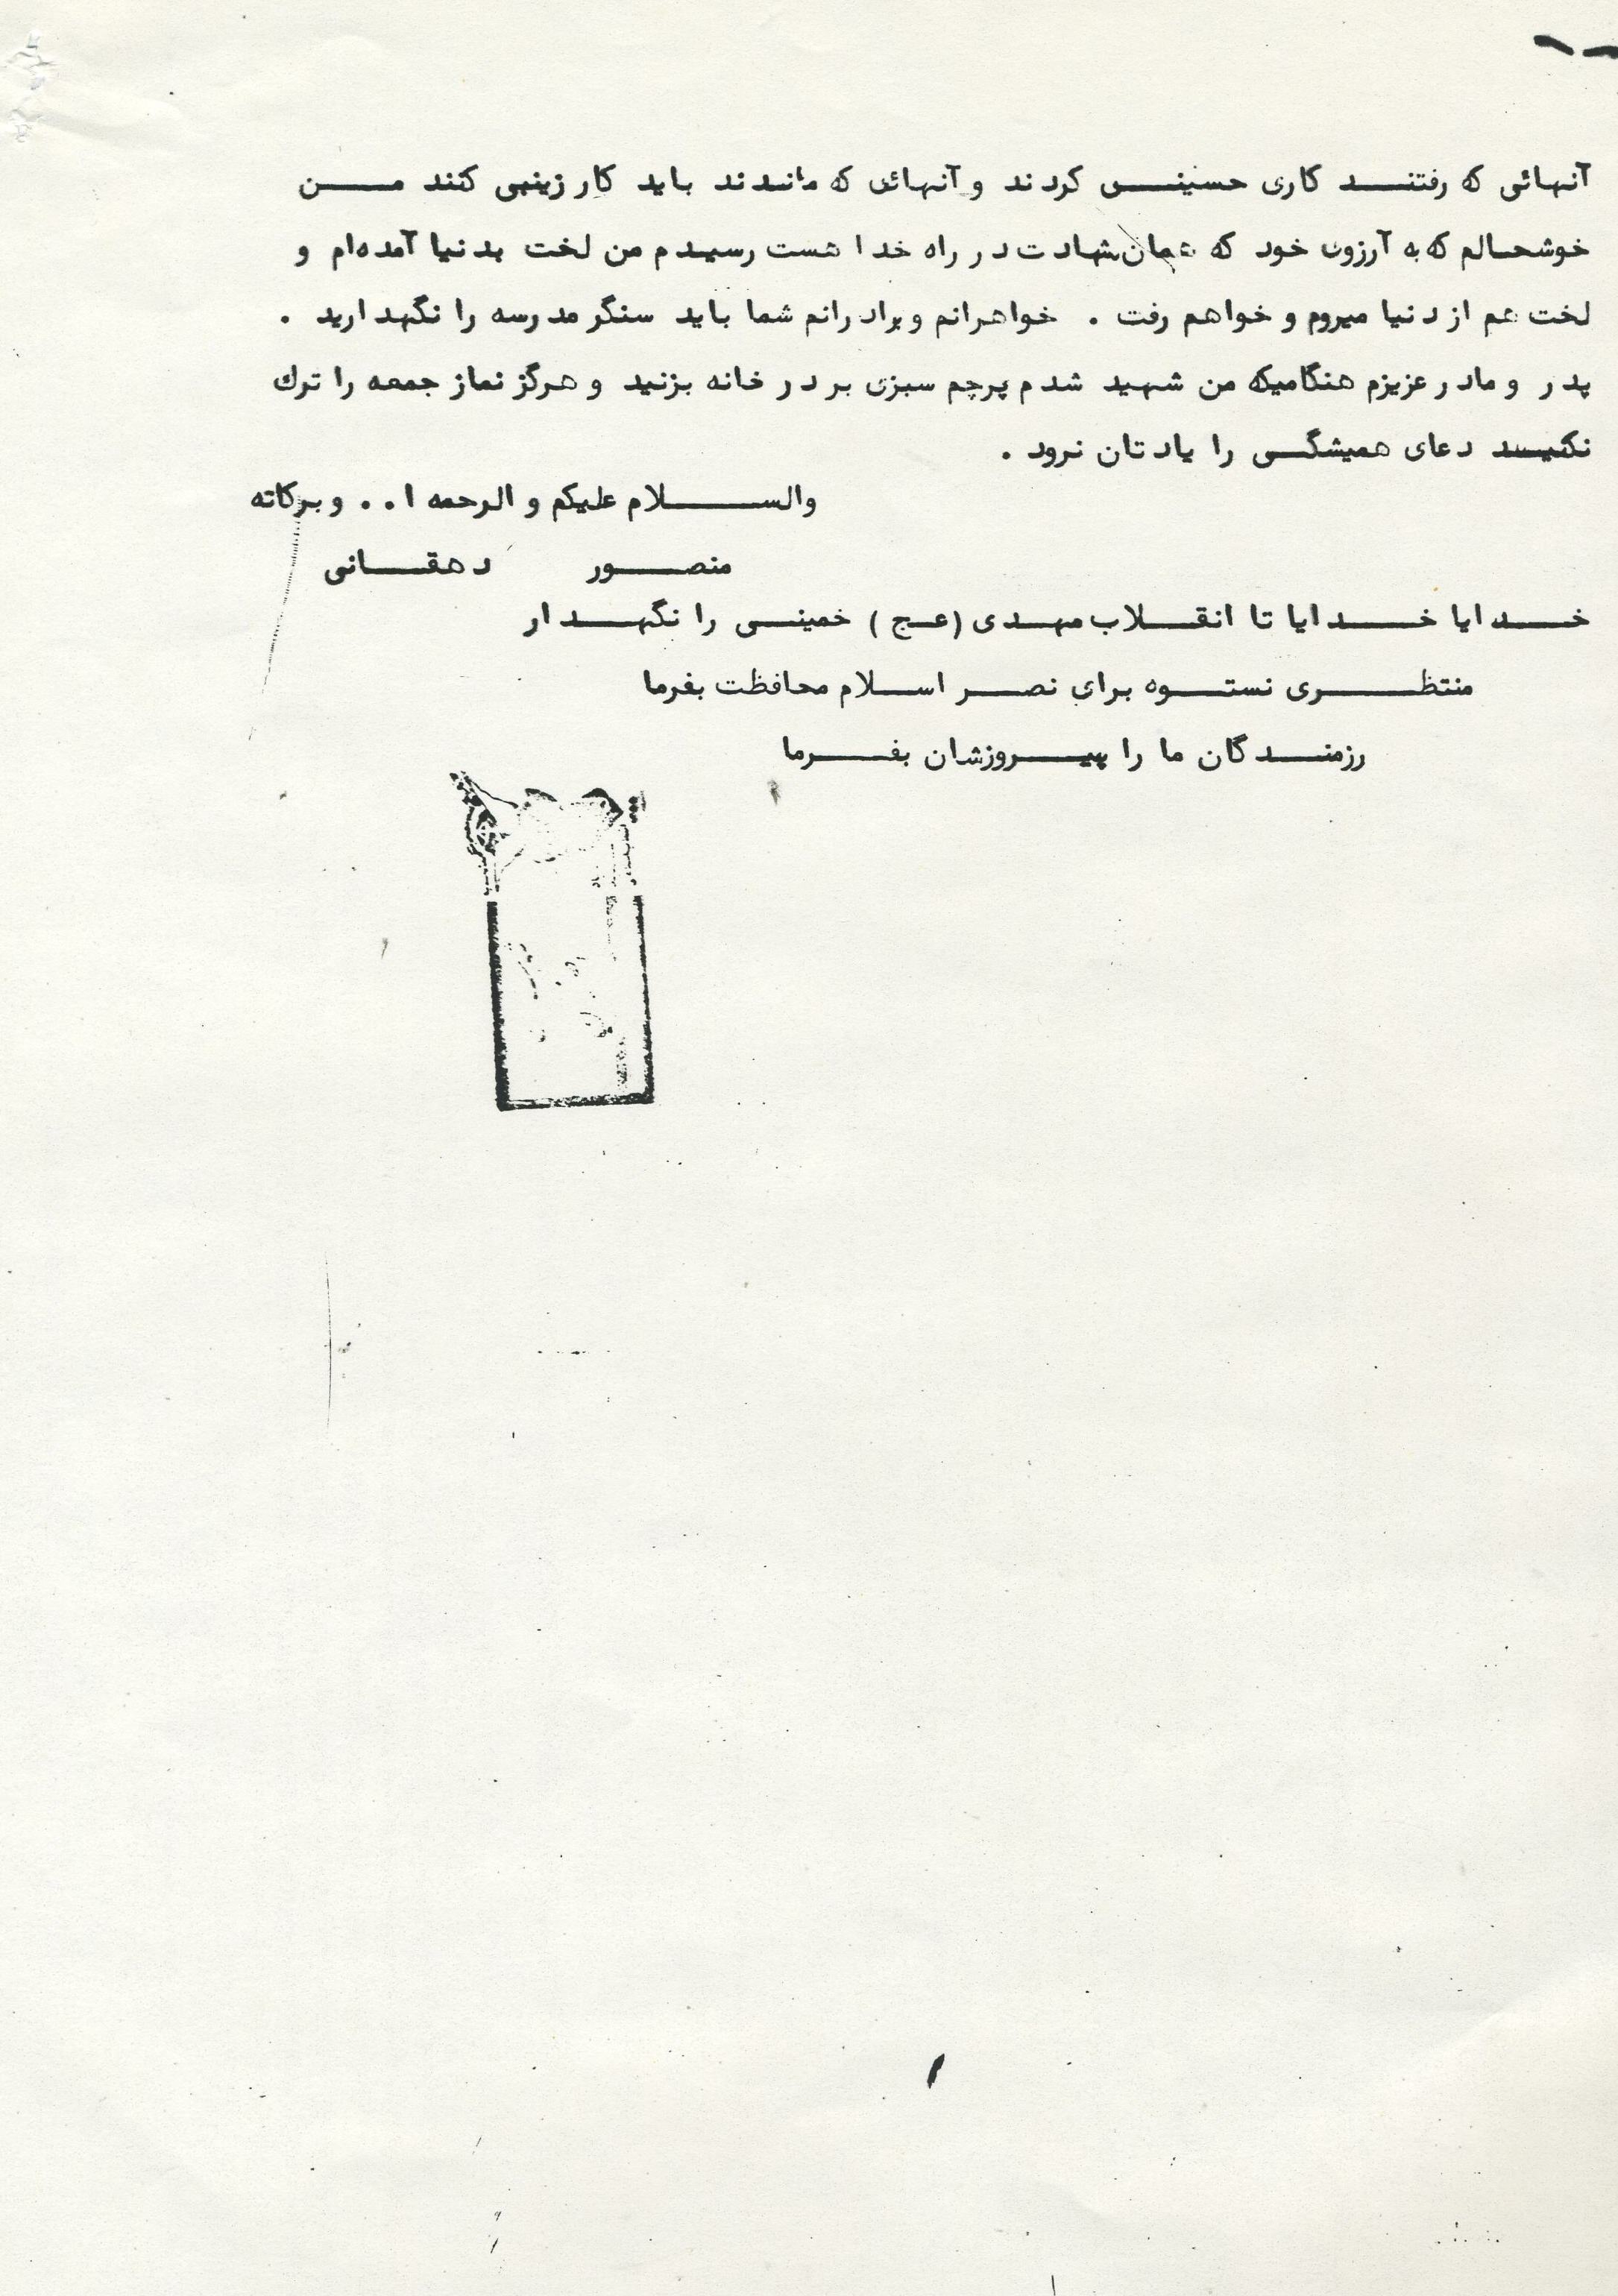 آنهائی که رفتند کاری حسینی کردند و آنهائی که ماندند باید کار زینبی کنند من
خوشحالم که به آرزوی خود که همان شهادت در راه خدا هست رسیدم من لخت بدنیا آمده‌ام و
لخت هم از دنیا میروم و خواهم رفت . خواهرانم و برادرانم شما باید سنگر مدرسه را نگهدارید .
پدر و مادر عزیزم هنگامیکه من شهید شدم پرچم سبزی بر در خانه بزنید و هرگز نماز جمعه را ترک
نکنید دعای همیشگی را یادتان نرود .
والسلام علیکم و الرحمه ا . . و برکاته
منصور دهقانی
خدایا خدایا تا انقلاب مهدی (عج) خمینی را نگهدار
منتظری نستوه برای نصر اسلام محافظت بفرما
رزمندگان ما را پیروزشان بفرما